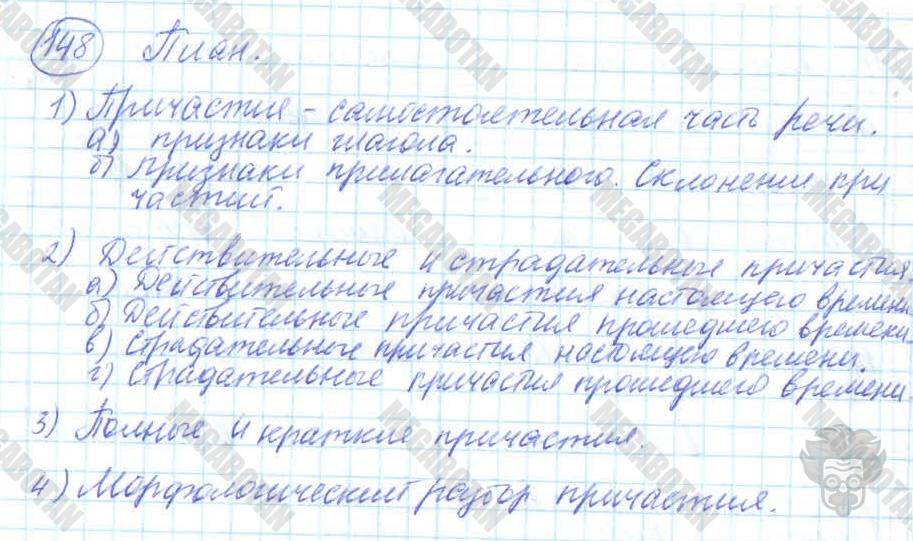 148 План.
1) Причастия - самостоятельная часть речи.
а) признаки глагола.
б) признаки прилагательного. Склонение при
частий.
2) Действительные и страдательные причастия
а) Действительные причастия настоящего времени
б) Действительные причастия прошедшего времени.
в) Страдательные причастия настоящего времени.
г) Страдательные причастия прошедшего времени.
3) Полные и краткие причастия.
4) Морфологический разбор причастия.
MEGABOTAN